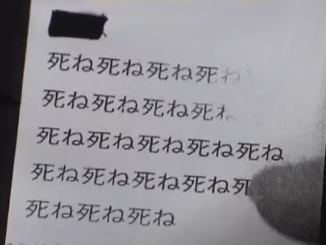 死ね死ね死ね死ね
死ね死ね死ね死ね
死ね死ね死ね死ね死ね
死ね死ね死ね死ね死
死ね死ね死ね